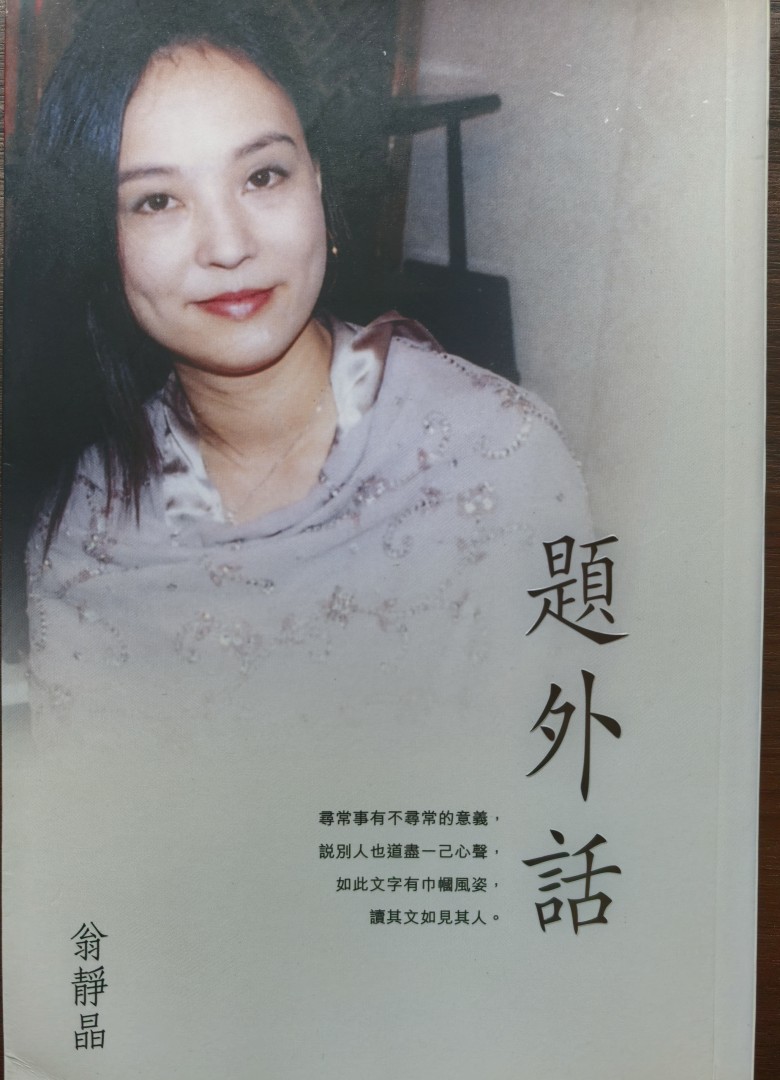 題外話
尋常事有不尋常的意義，
説別人也道盡一己心聲，
如此文字有巾幗風姿，
讀其文如見其人。
翁靜晶